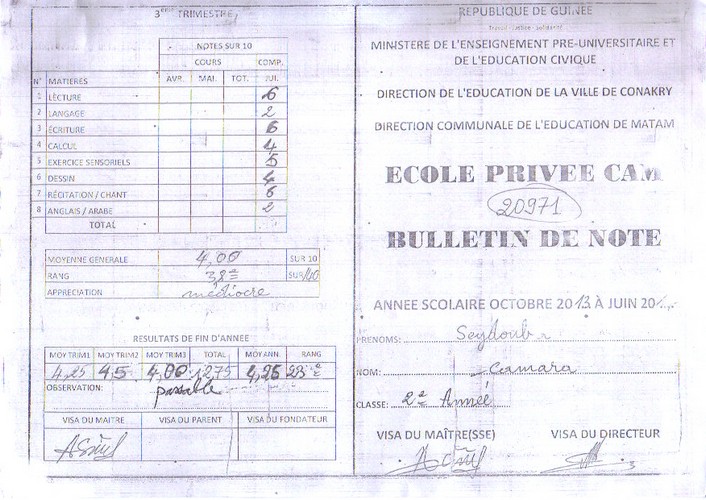 3ème TRIMESTRE
NOTES SUR 10
COURS COMP.
N° MATIERES AVR. MAI. TOT. JUI.
1 LECTURE 6
2 LANGAGE 2
3 ECRITURE 6
4 CALCUL 4
5 EXERCICE SENSORIELS 5
6 DESSIN 4
7 RÉCITATION / CHANT 6
8 ANGLAIS / ARABE 2
TOTAL
MOYENNE GENERALE 4,00 SUR 10
RANG 38e SUR
APPRECIATION médiocre
RESULTATS DE FIN D'ANNÉE
MOY TRIM1 MOY TRIM2 MOY TRIM3 TOTAL MOY ANN. RANG
4,25 4,5 4,00 12,75 4,25 28e
OBSERVATION: passable
VISA DU MAITRE VISA DU PARENT VISA DU FONDATEUR
REPUBLIQUE DE GUINEE
Travail - Justice - Solidarité
MINISTERE DE L'ENSEIGNEMENT PRE-UNIVERSITAIRE ET
DE L'EDUCATION CIVIQUE
DIRECTION DE L'EDUCATION DE LA VILLE DE CONAKRY
DIRECTION COMMUNALE DE L'EDUCATION DE MATAM
ECOLE PRIVEE CAM
20971
BULLETIN DE NOTE
ANNEE SCOLAIRE OCTOBRE 2013 À JUIN 201
PRENOMS: Seydouba
NOM: Camara
CLASSE: 2e Année
VISA DU MAÎTRE(SSE) VISA DU DIRECTEUR